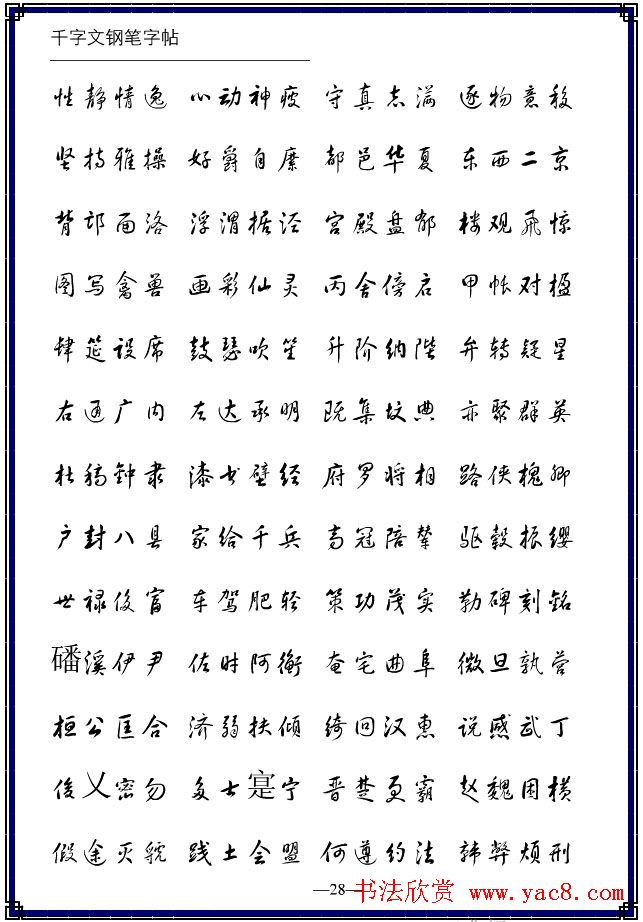 千字文钢笔字帖
性静情逸 心动神疲 守真志满 逐物意移
坚持雅操 好爵自縻 都邑华夏 东西二京
背邙面洛 浮渭据泾 宫殿盘郁 楼观飞惊
图写禽兽 画彩仙灵 丙舍傍启 甲帐对楹
肆筵设席 鼓瑟吹笙 升阶纳陛 弁转疑星
右通广内 左达承明 既集坟典 亦聚群英
杜稿钟隶 漆书壁经 府罗将相 路侠槐卿
户封八县 家给千兵 高冠陪辇 驱毂振缨
世禄侈富 车驾肥轻 策功茂实 勒碑刻铭
磻溪伊尹 佐时阿衡 奄宅曲阜 微旦孰营
桓公匡合 济弱扶倾 绮回汉惠 说感武丁
俊乂密勿 多士寔宁 晋楚更霸 赵魏困横
假途灭虢 践土会盟 何遵约法 韩弊烦刑
—28—
书法欣赏 www.yac8.com